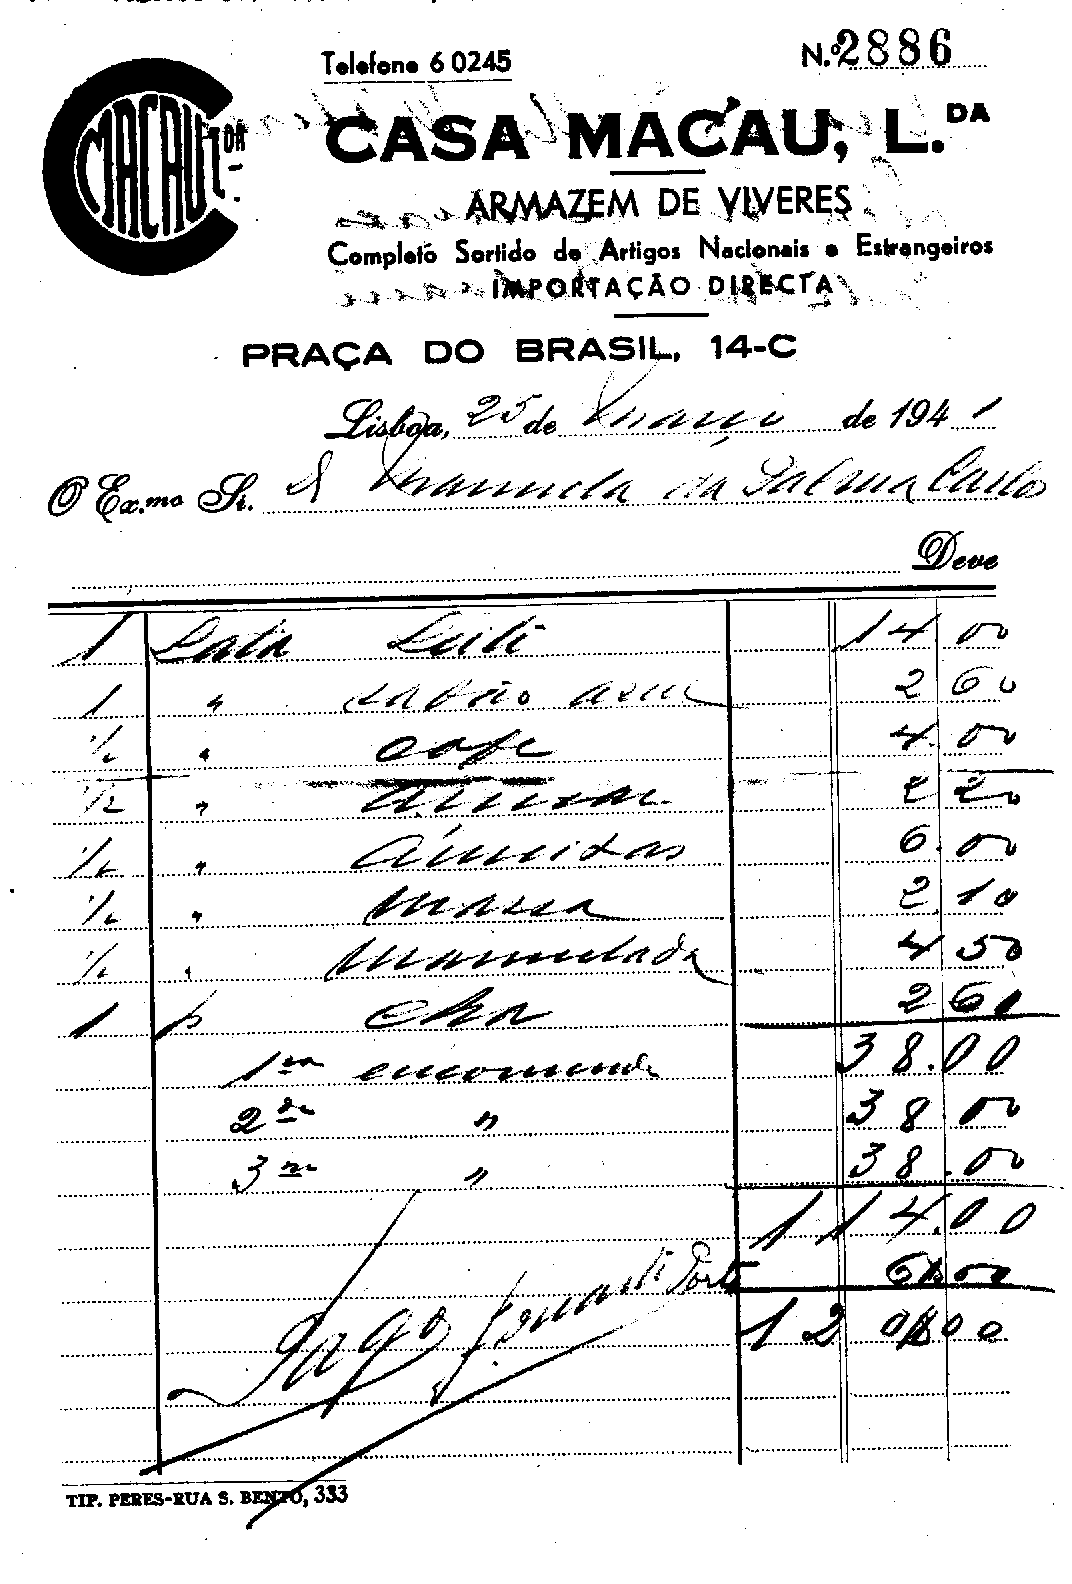 Telefone 6 0245
N.º 2886
C MACAU L.DA
CASA MACAU, L.DA
ARMAZEM DE VIVERES
Completo Sortido de Artigos Nacionais e Estrangeiros
IMPORTAÇÃO DIRECTA
PRAÇA DO BRASIL, 14-C
Lisboa, 25 de Março de 1941
O Ex.mo Sr. Manuela da Palma Carlos
Deve
1 Lata Leite 14 00
1 " sabão 2 60
1/2 " café 4.00
1/2 " 2 20
1/2 " 6.00
1/2 " massa 2 10
1/2 " marmelada 4 50
1 p chá 2 60
1ra encomenda 38.00
2da " 38 00
3ra " 38.00
114.00
6.00
120.00
Pago
TIP. PERES-RUA S. BENTO, 333